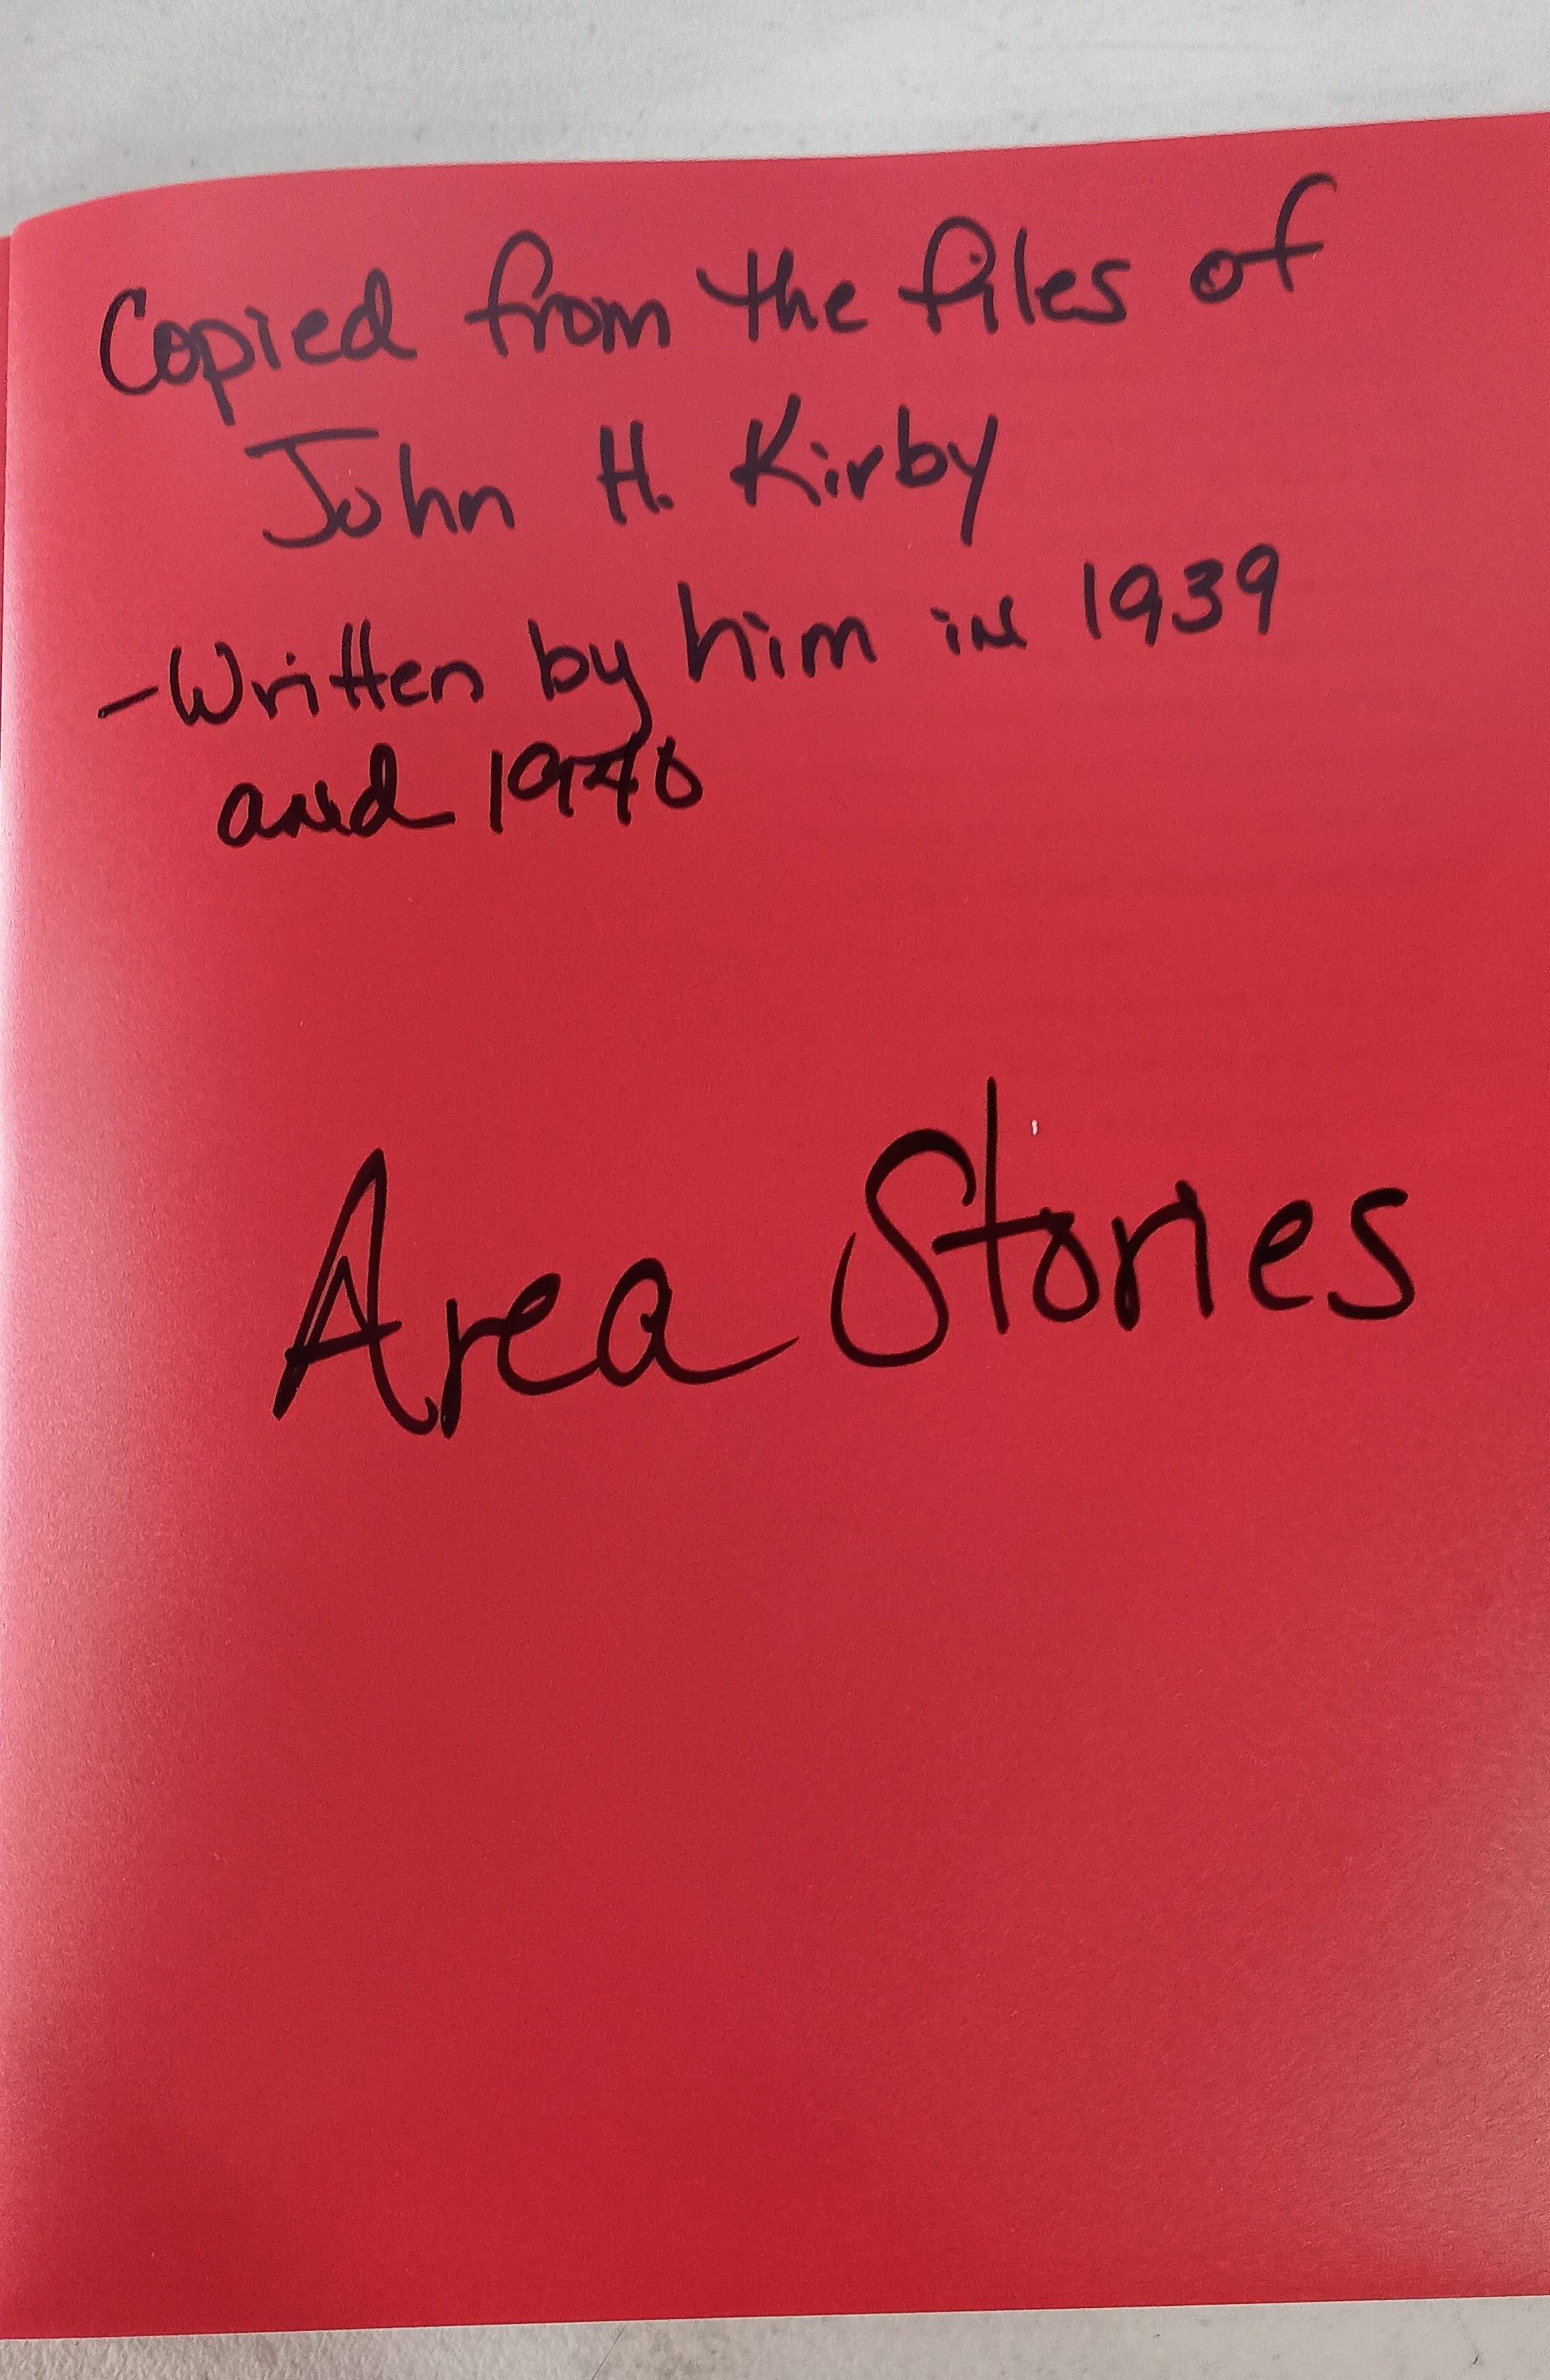 Copied from the files of
John H. Kirby
- Written by him in 1939
and 1940
Area Stories